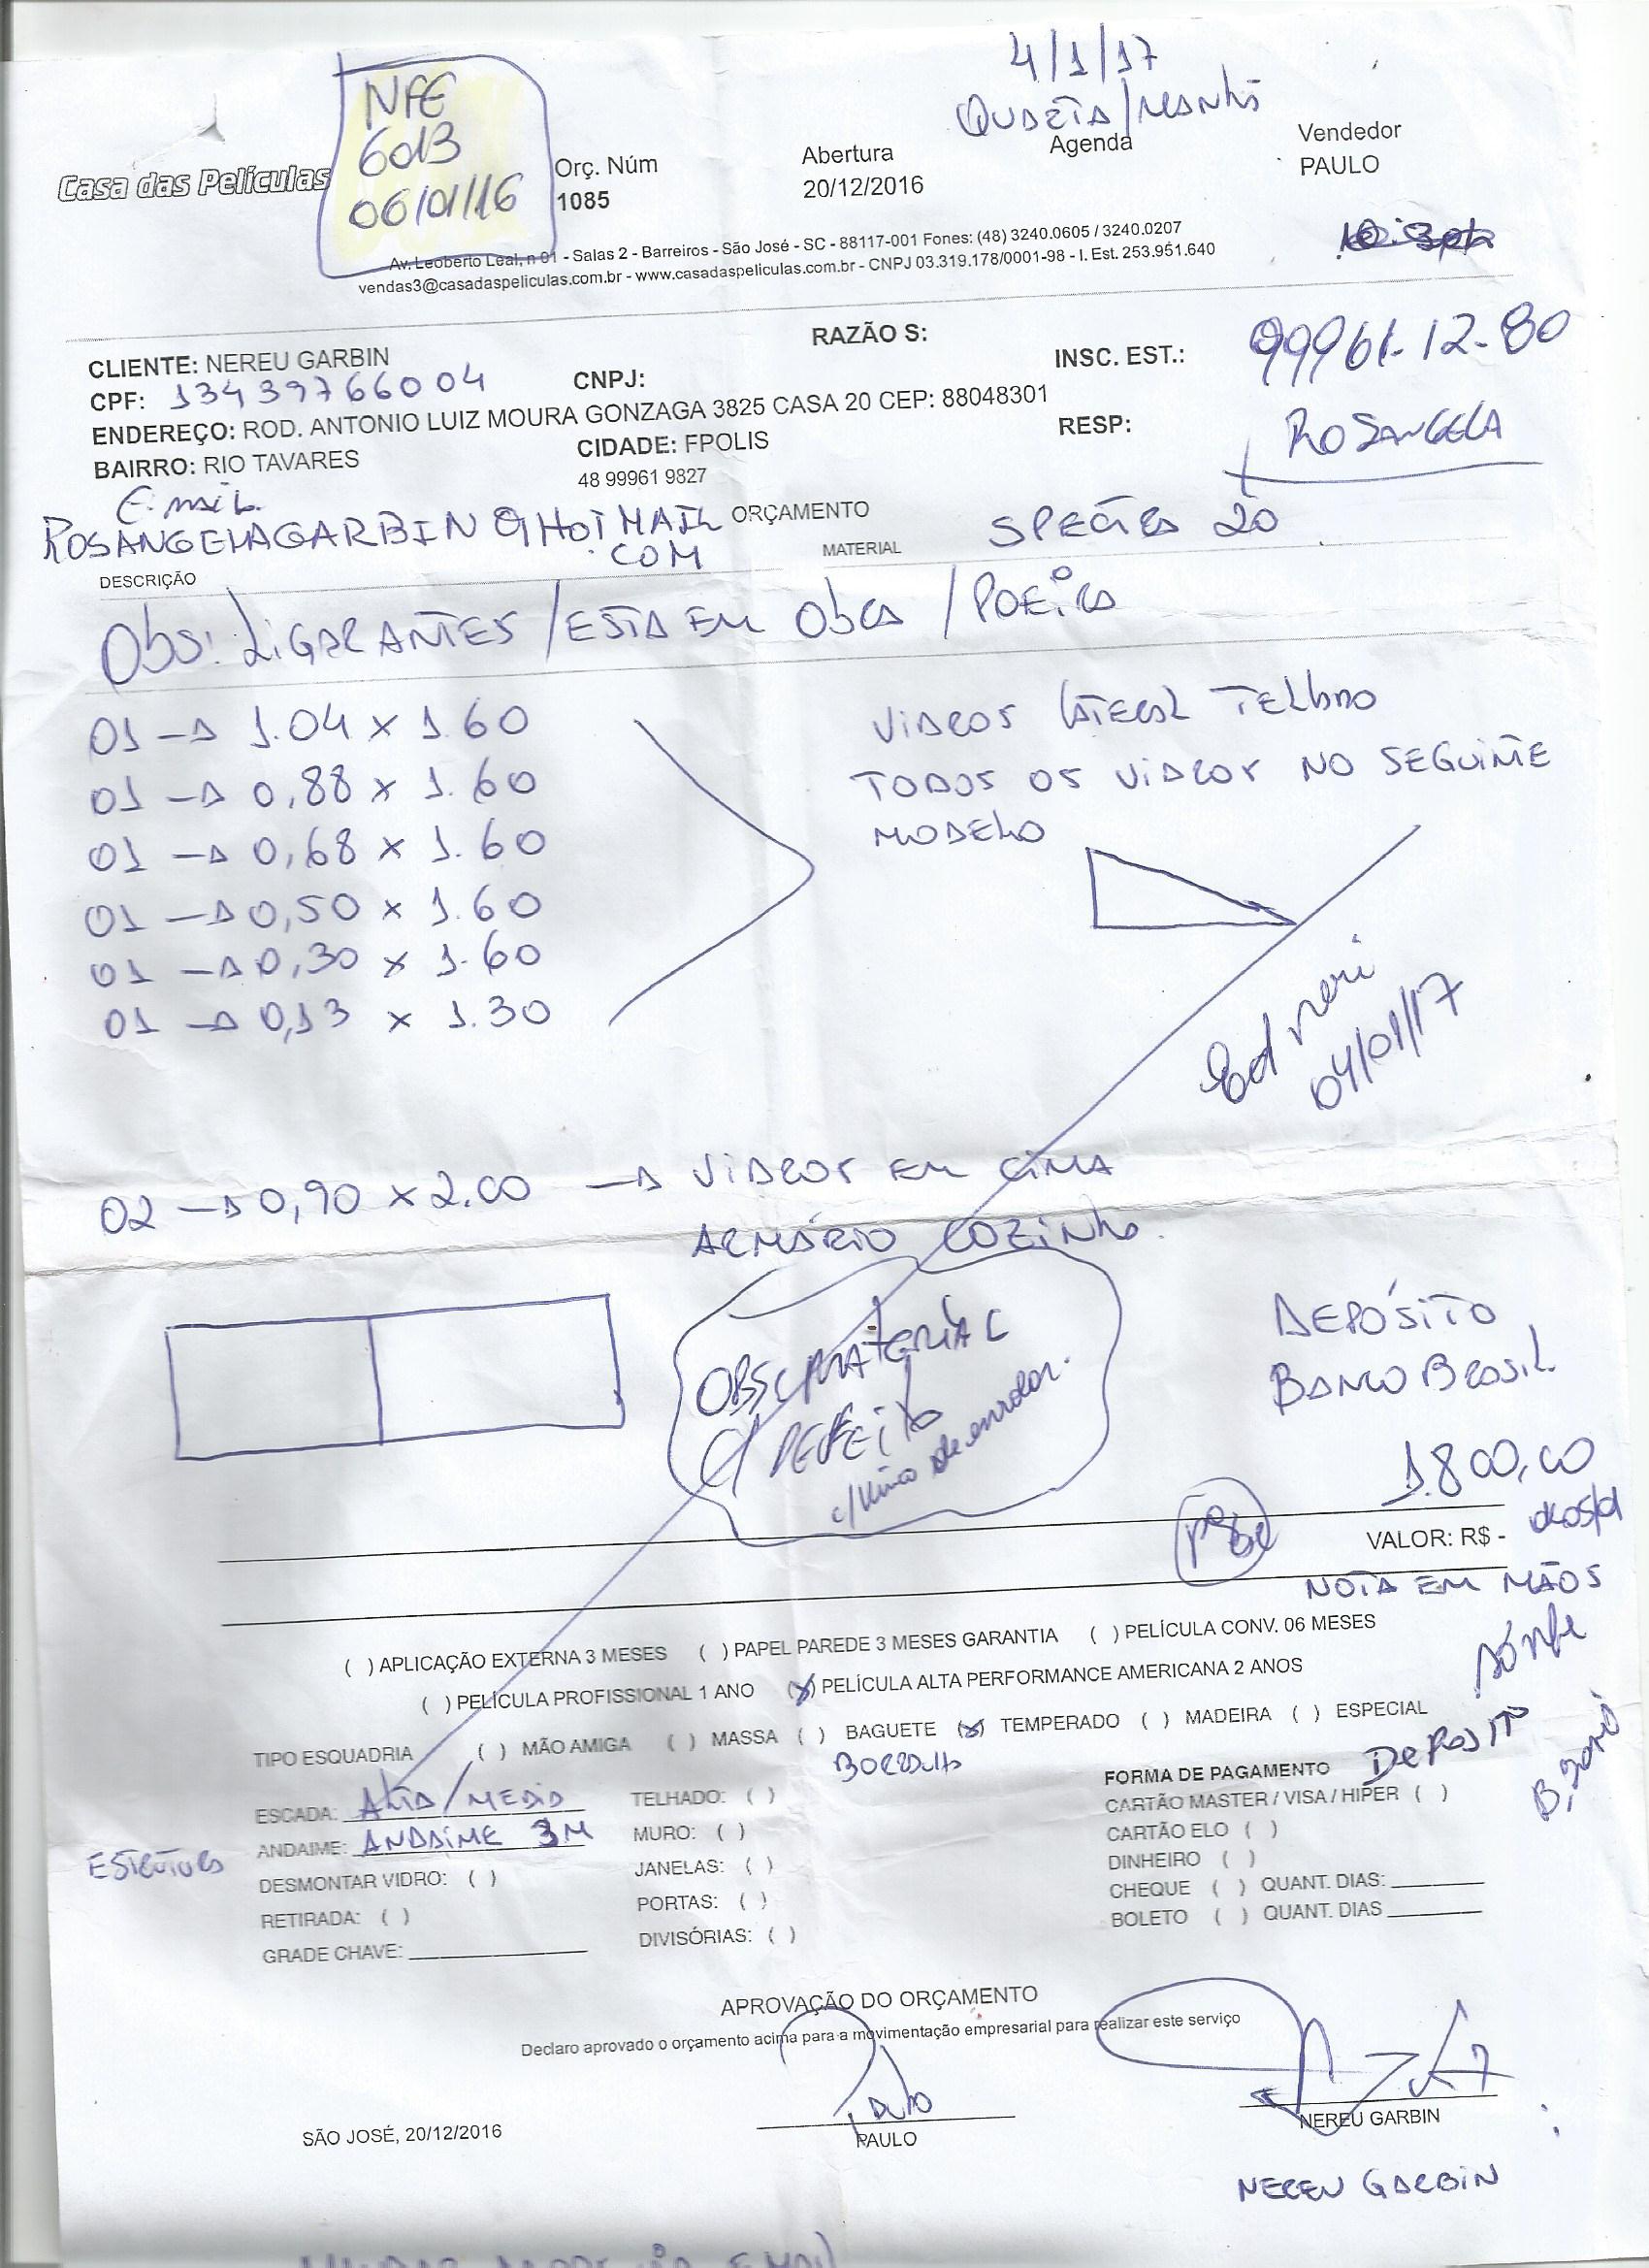 4/1/17
QUARTA/MANHÃ
NFE
6013
06/01/16
Casa das Películas
Orç. Núm
1085
Abertura
20/12/2016
Agenda
Vendedor
PAULO
Av. Leoberto Leal, n 01 - Salas 2 - Barreiros - São José - SC - 88117-001 Fones: (48) 3240.0605 / 3240.0207
vendas3@casadaspeliculas.com.br - www.casadaspeliculas.com.br - CNPJ 03.319.178/0001-98 - I. Est. 253.951.640
CLIENTE: NEREU GARBIN RAZÃO S:
CPF: 13439766004 CNPJ: INSC. EST.: 99961-12-80
ENDEREÇO: ROD. ANTONIO LUIZ MOURA GONZAGA 3825 CASA 20 CEP: 88048301
BAIRRO: RIO TAVARES CIDADE: FPOLIS RESP: ROSANGELA
48 99961 9827
E-mail
ROSANGELAGARBIN@HOTMAIL.
COM
ORÇAMENTO
DESCRIÇÃO MATERIAL
20
Obs: LIGAR ANTES / ESTA EM ObRA / POEIRA
01 → 1.04 x 1.60
01 → 0,88 x 1.60
01 → 0,68 x 1.60
01 → 0,50 x 1.60
01 → 0,30 x 1.60
01 → 0,13 x 1.30
VIDROS LATERAL TELhADO
TODOS OS VIDROS NO SEGUINTE
MODELO
04/01/17
02 → 0,90 x 2.00 → VIDROS EM CIMA
ARMÁRIO COZINhA.
OBS: MATERIAL
C/ DEFEITO
DEPÓSITO
BANCO BRASIL
1.800,00
VALOR: R$ -
NOTA EM MÃOS
( ) APLICAÇÃO EXTERNA 3 MESES ( ) PAPEL PAREDE 3 MESES GARANTIA ( ) PELÍCULA CONV. 06 MESES
( ) PELÍCULA PROFISSIONAL 1 ANO (X) PELÍCULA ALTA PERFORMANCE AMERICANA 2 ANOS
TIPO ESQUADRIA ( ) MÃO AMIGA ( ) MASSA ( ) BAGUETE (X) TEMPERADO ( ) MADEIRA ( ) ESPECIAL
BORRACHA
ESCADA: ALTA/MEDIA
ANDAIME: ANDAIME 3M
ESTRUTURA
DESMONTAR VIDRO: ( )
RETIRADA: ( )
GRADE CHAVE:
TELHADO: ( )
MURO: ( )
JANELAS: ( )
PORTAS: ( )
DIVISÓRIAS: ( )
FORMA DE PAGAMENTO DEPOSITO
CARTÃO MASTER / VISA / HIPER ( )
CARTÃO ELO ( )
DINHEIRO ( )
CHEQUE ( ) QUANT. DIAS:
BOLETO ( ) QUANT. DIAS
APROVAÇÃO DO ORÇAMENTO
Declaro aprovado o orçamento acima para a movimentação empresarial para realizar este serviço
Paulo
SÃO JOSÉ, 20/12/2016
PAULO
NEREU GARBIN
NEREU GARBIN